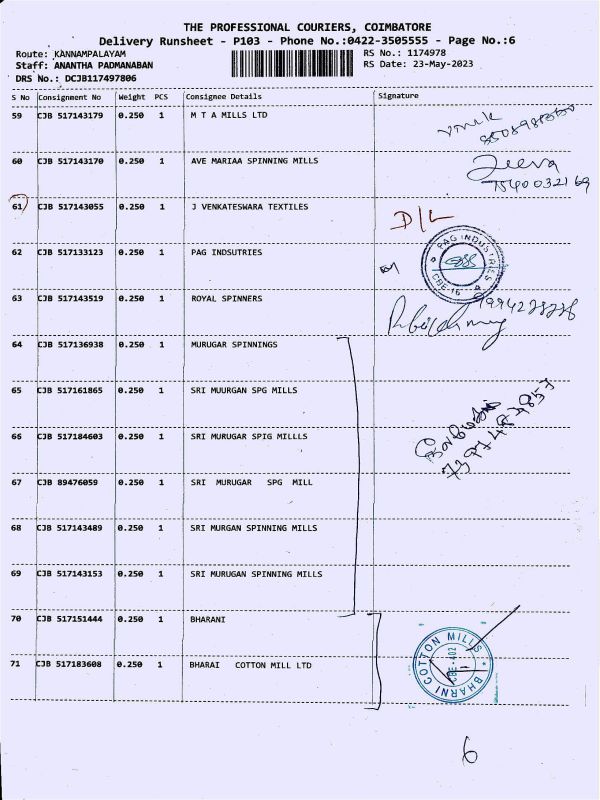 THE PROFESSIONAL COURIERS, COIMBATORE
Delivery Runsheet - P103 - Phone No.:0422-3505555 - Page No.:6
Route: KANNAMPALAYAM RS No.: 1174978
Staff: ANANTHA PADMANABAN RS Date: 23-May-2023
DRS No.: DCJB117497806
S No Consignment No Weight PCS Consignee Details Signature
59 CJB 517143179 0.250 1 M T A MILLS LTD
60 CJB 517143170 0.250 1 AVE MARIAA SPINNING MILLS Jeeva
7540032169
61 CJB 517143055 0.250 1 J VENKATESWARA TEXTILES D/L
62 CJB 517133123 0.250 1 PAG INDSUTRIES PAG INDUSTRIES CBE-16
63 CJB 517143519 0.250 1 ROYAL SPINNERS
64 CJB 517136938 0.250 1 MURUGAR SPINNINGS
65 CJB 517161865 0.250 1 SRI MUURGAN SPG MILLS
66 CJB 517184603 0.250 1 SRI MURUGAR SPIG MILLLS
67 CJB 89476059 0.250 1 SRI MURUGAR SPG MILL
68 CJB 517143489 0.250 1 SRI MURGAN SPINNING MILLS
69 CJB 517143153 0.250 1 SRI MURUGAN SPINNING MILLS
70 CJB 517151444 0.250 1 BHARANI
71 CJB 517183608 0.250 1 BHARAI COTTON MILL LTD BHARNI COTTON MILLS CBE-402
6